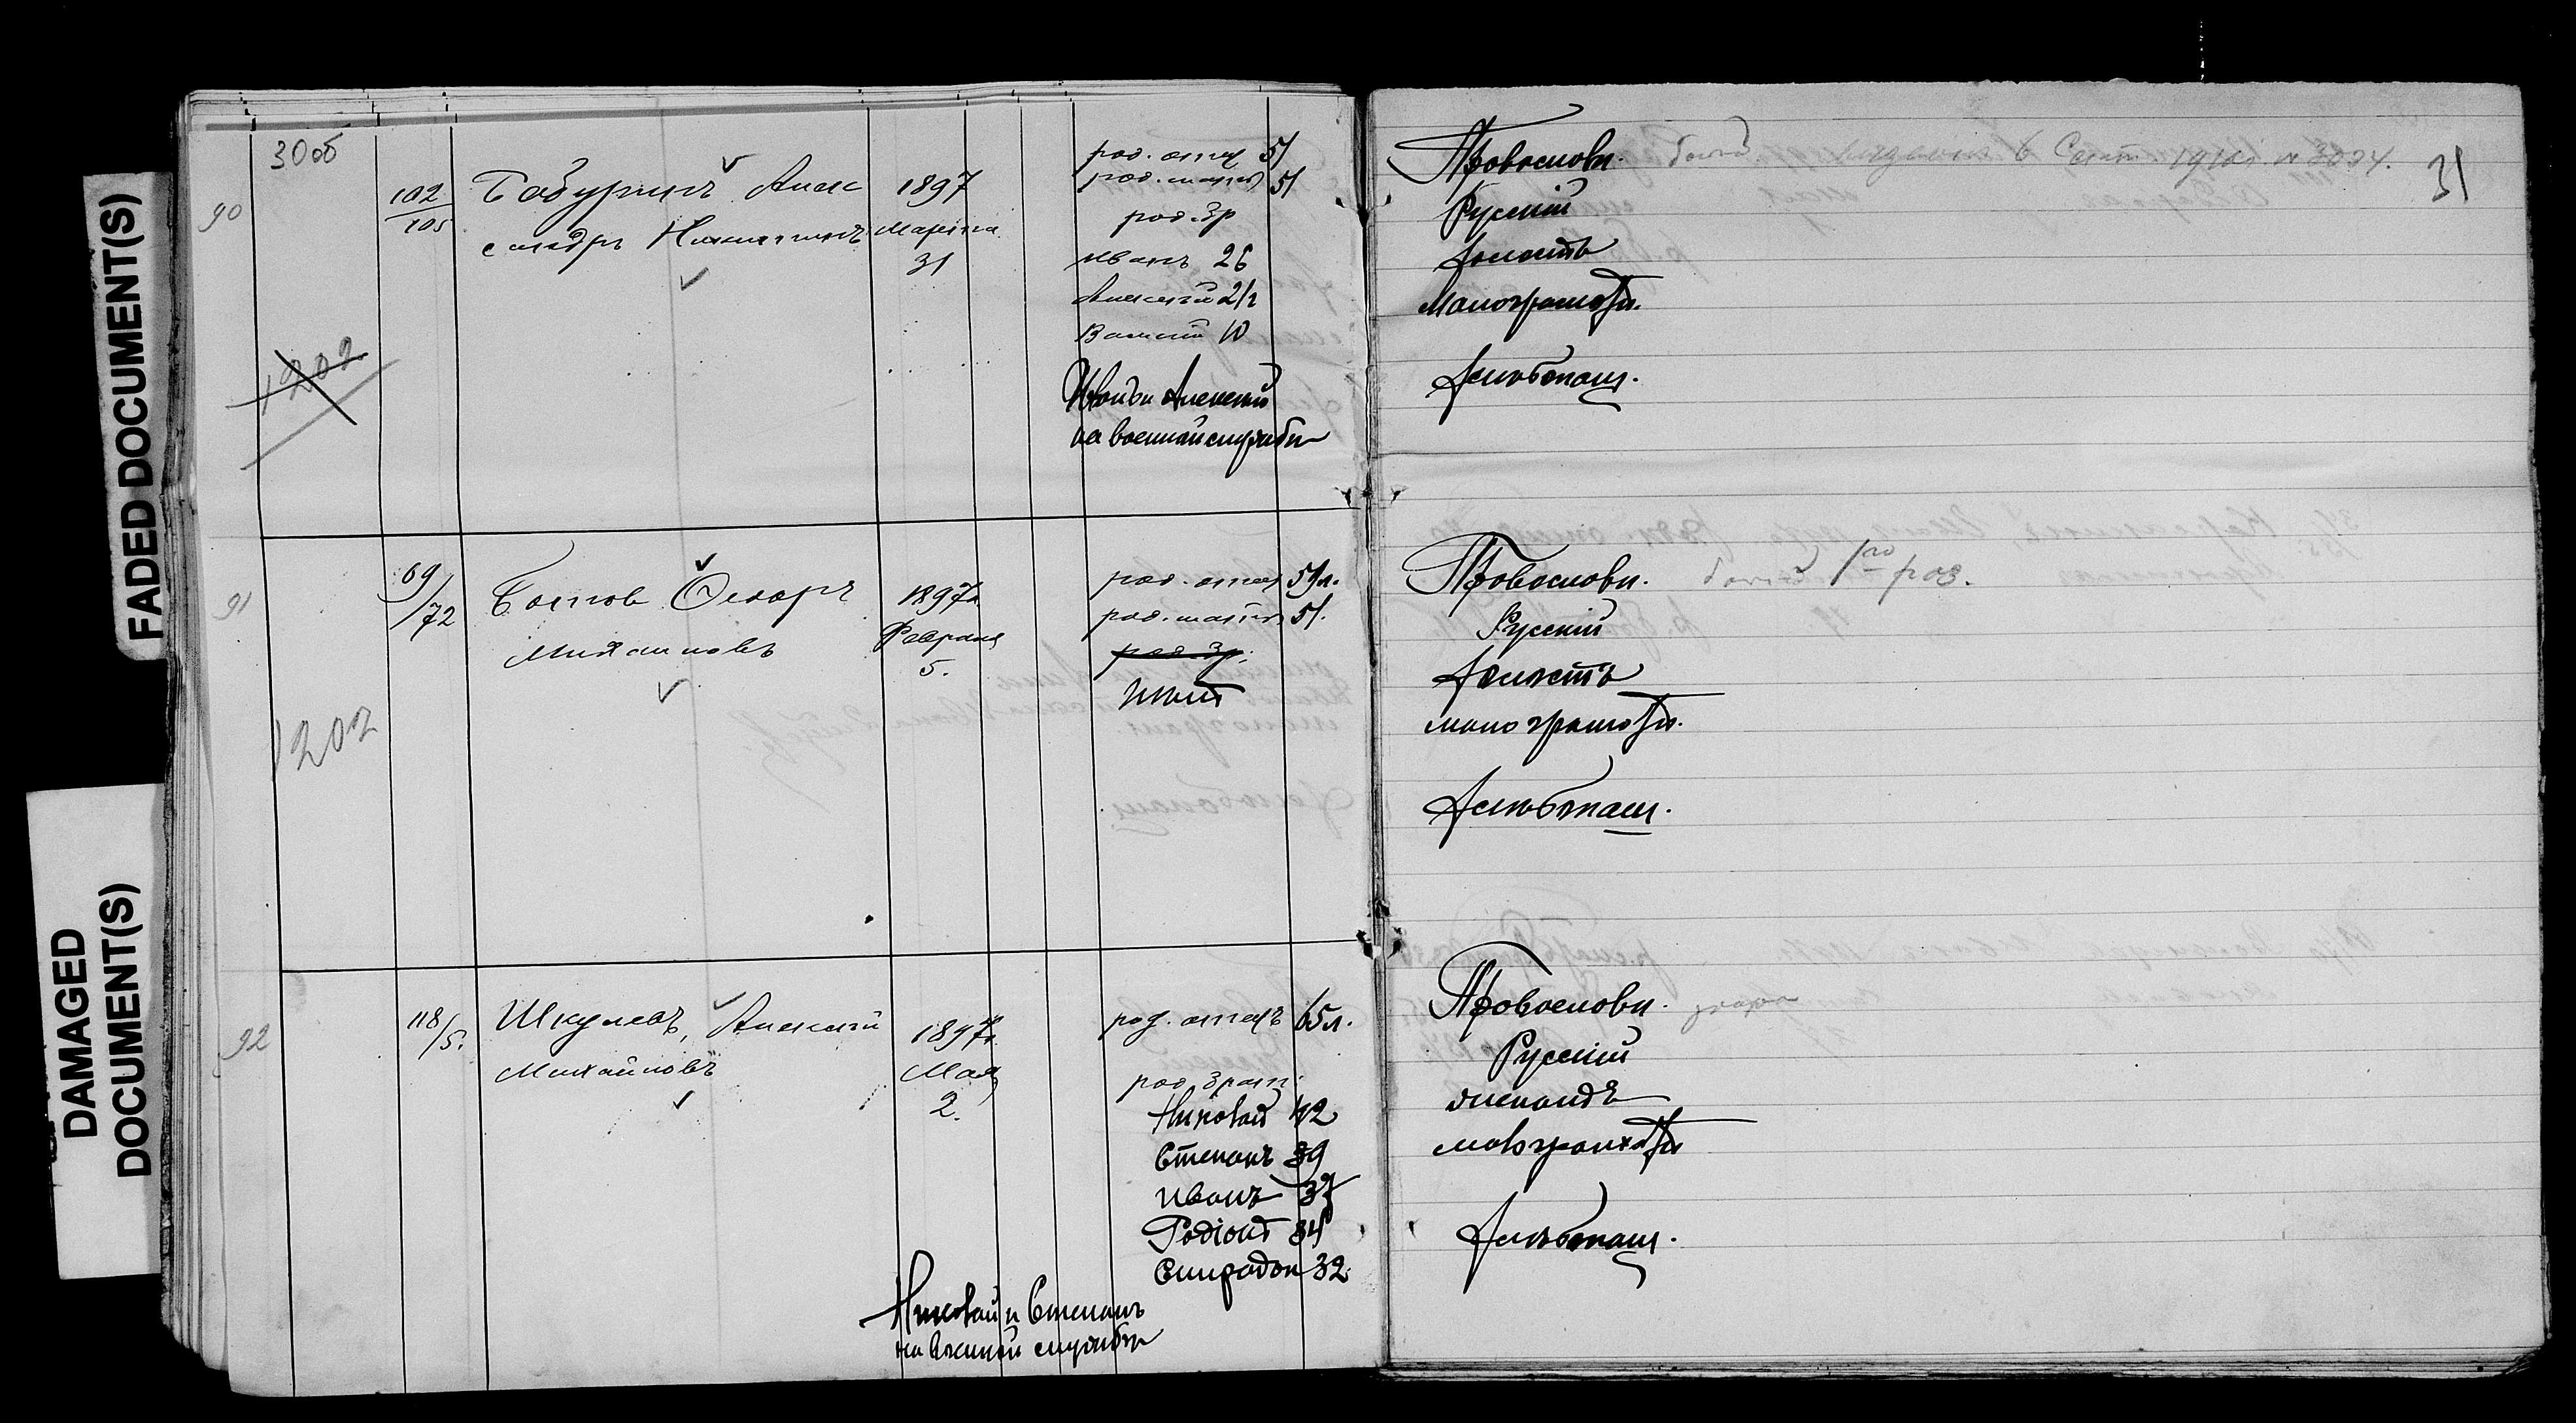 FADED DOCUMENT(S)
DAMAGED
DOCUMENT(S)
30об
90
102/105
Бабуринъ Алек
сандръ Никитинъ
1897
Марта
31
род. отец 51
род. мать 51
род. бр
Иванъ 26
Алексей 21
Василий 10
Иванъ и Алексей
на военной службе
1202
91
69/72
Федоръ
Михаиловъ
1897г.
Февраля
5.
род. отец 59л.
род. мать 51.
род. бр.
нет
1202
92
118/5.
Шкулевъ, Алексей
Михайловъ
1897г.
Мая
2.
род. отецъ 65л.
род. брат.
Николай 42
Степанъ 39
Иванъ 37
Родіонъ 34
Спиридон 32
Николай и Степанъ
на военной службе
31
Православн.
в Сент. 191 г. № 3024.
Русский
холостъ
малограмотн.
хлебопаш.
Православн.
1го раз.
Русский
холостъ
малограмотн.
хлебопаш.
Православн.
Русский
женатъ
малограмотн
хлебопаш.